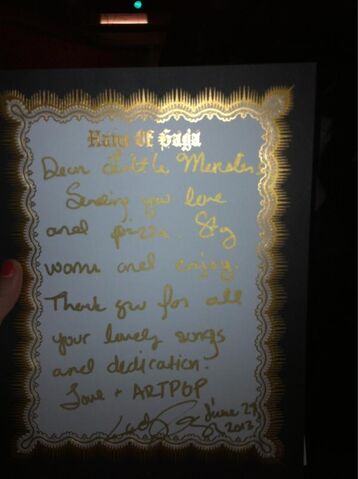 Haus Of Gaga
Dear Little Monsters,
Sending you love
and pizza. Stay
warm and enjoy.
Thank you for all
your lovely songs
and dedication.
Love + ARTPOP
June
2013